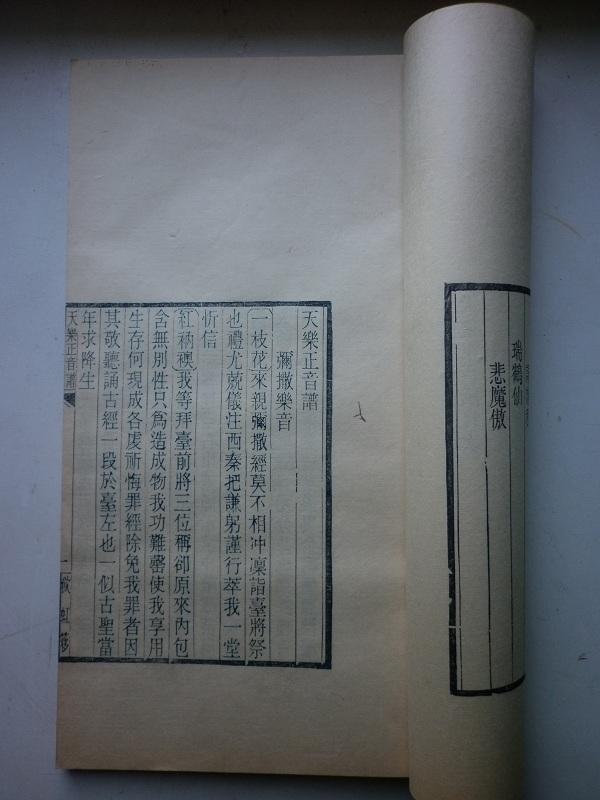 瑞鶴仙
悲魔傲
天樂正音譜
彌撒樂音
一枝花來親彌撒經莫不相冲凜詣臺將祭
也禮尤兢儀注西秦把謙躬謹行萃我一堂
忻信
紅衲襖我等拜臺前將三位稱卻原來內包
含無別性只爲造成物我功難罄使我享用
生存何現成各虔祈悔罪經除免我罪者因
其敬聽誦古經一段於臺左也一似古聖當
年求降生
天樂正音譜
一